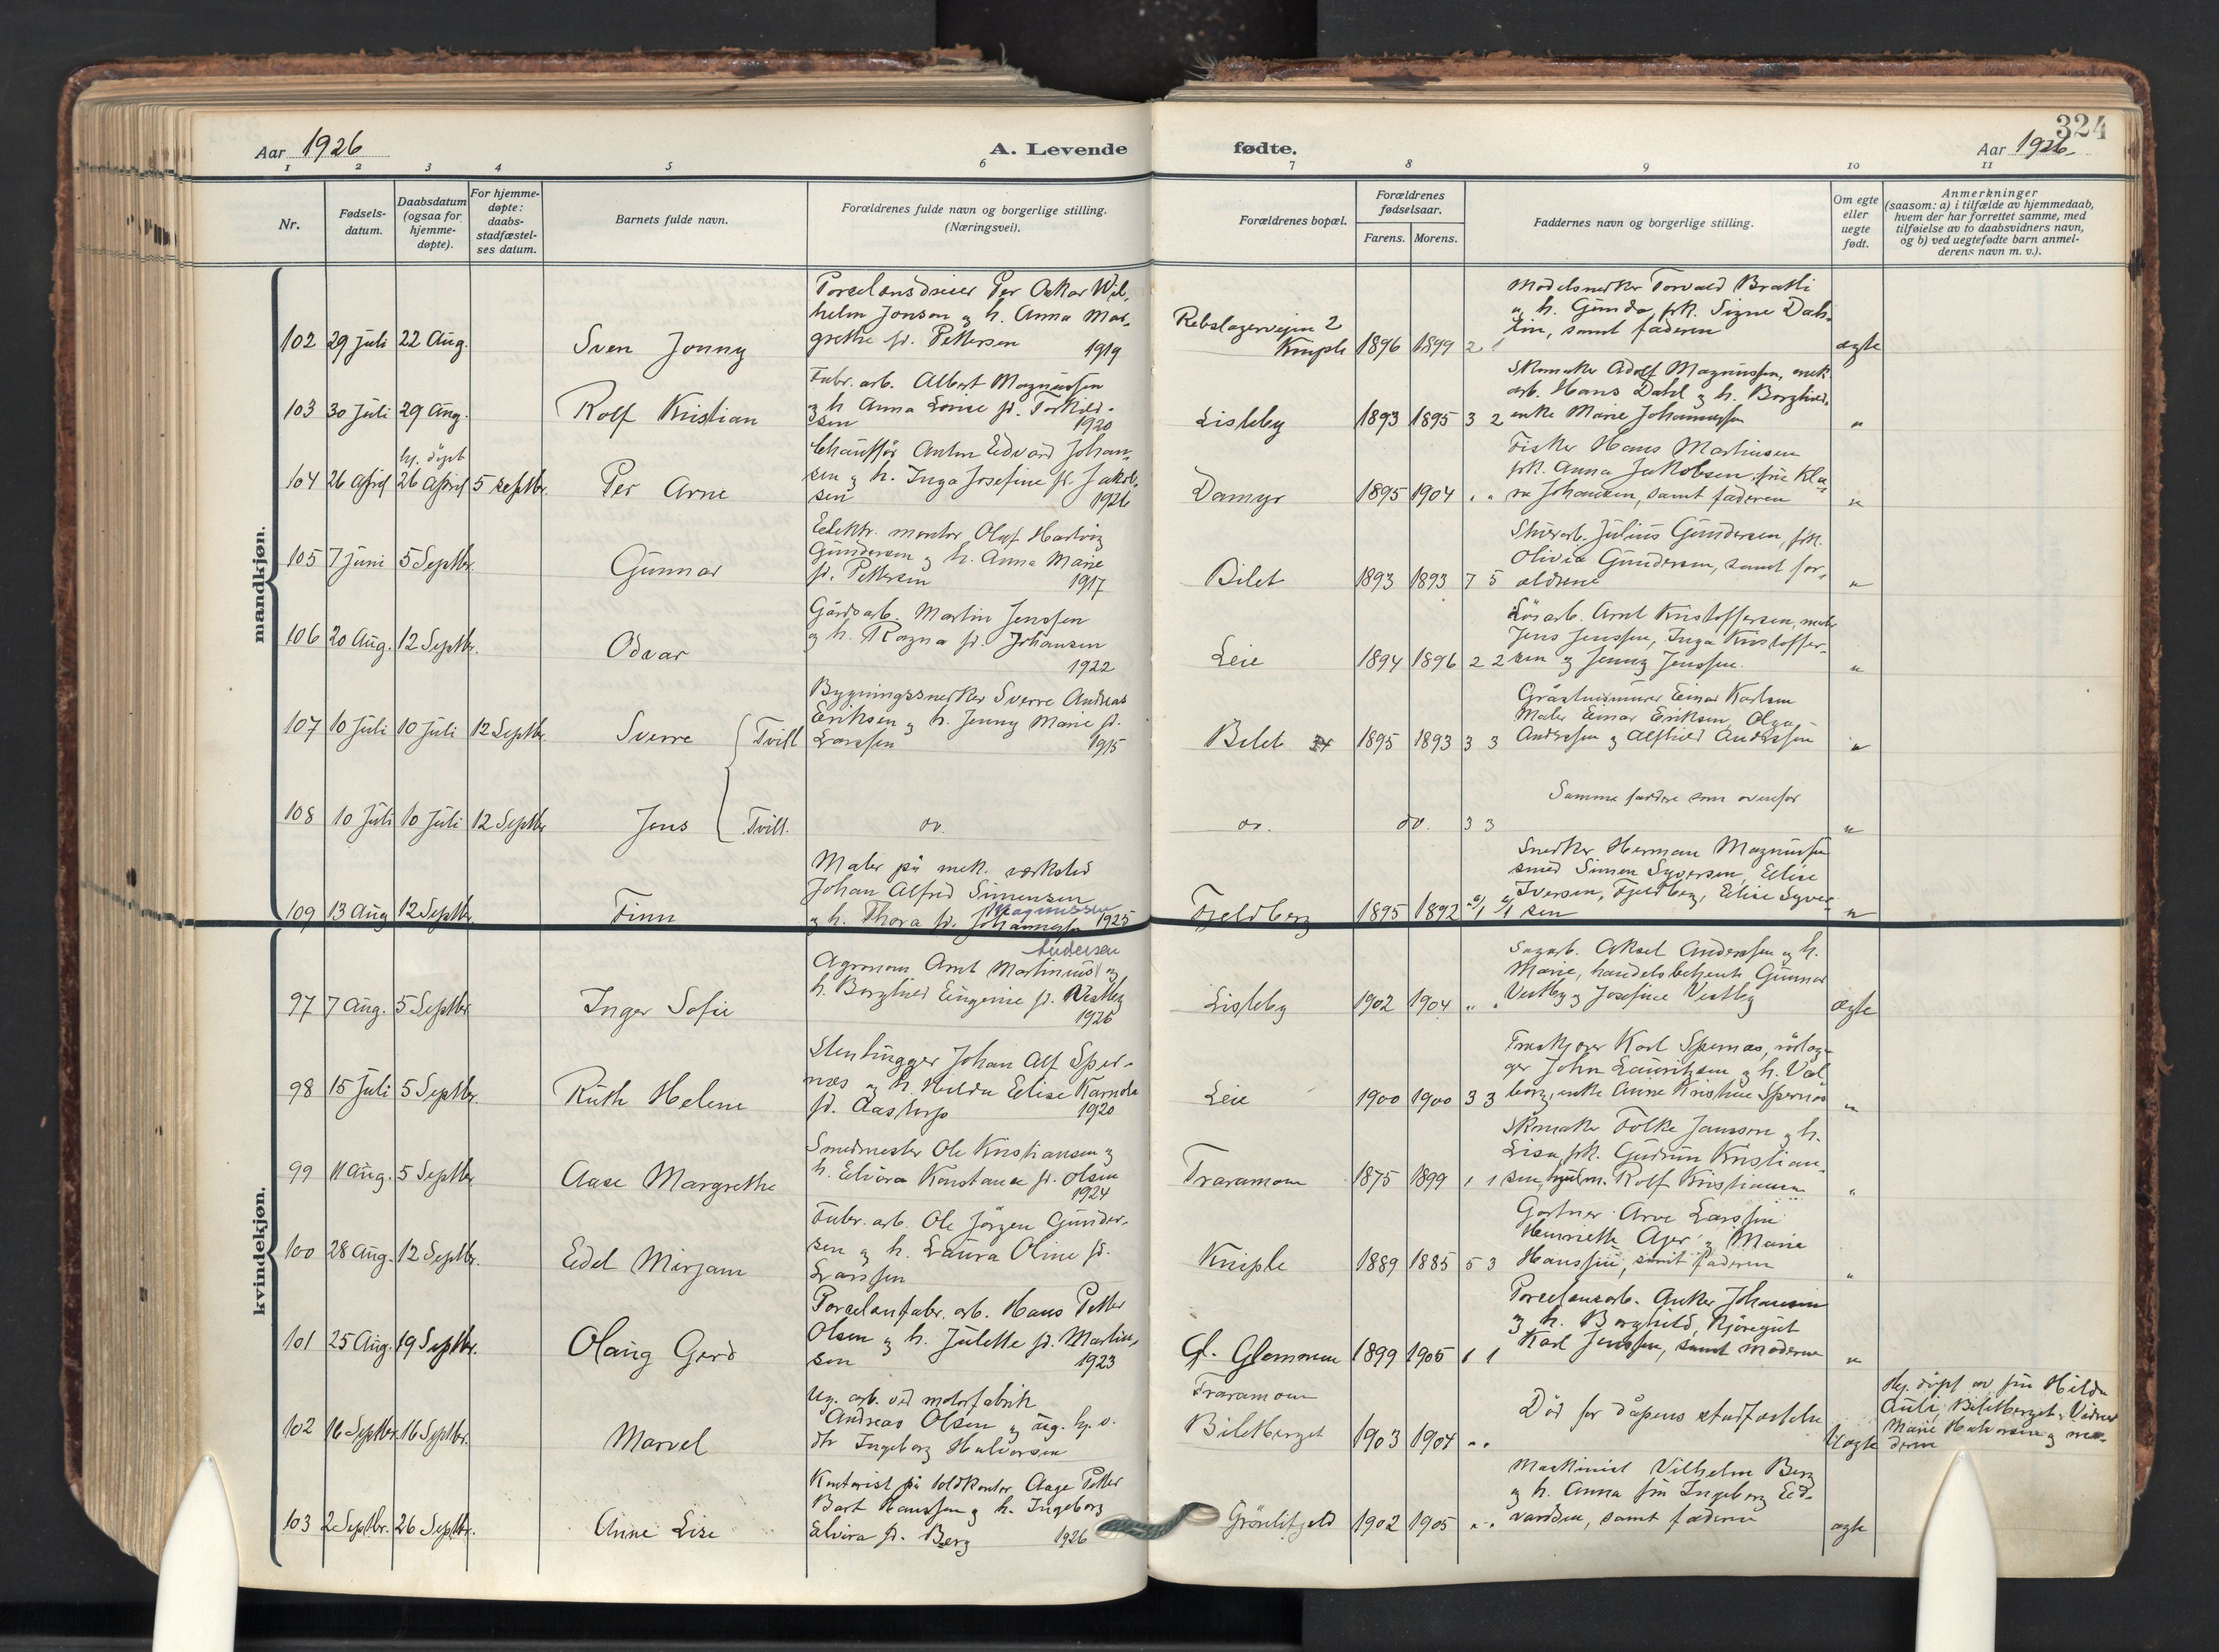 324
Aar 1926
A. Levende
fødte.
Aar 1926
1 2 3 4 5 6 7 8 9 10 11
Nr.
Fødsels-
datum.
Daabsdatum
(ogsaa for
hjemme-
døpte).
For hjemme-
døpte:
daabs-
stadfæstel-
ses datum.
Barnets fulde navn.
Forældrenes fulde navn og borgerlige stilling.
(Næringsvei).
Forældrenes bopæl.
Forældrenes
fødselsaar.
Farens. Morens.
Faddernes navn og borgerlige stilling.
Om egte
eller
uegte
født.
Anmerkninger
(saasom: a) i tilfælde av hjemmedaab,
hvem der har forrettet samme, med
tilføielse av to daabsvidners navn,
og b) ved uegtefødte barn anmel-
derens navn m. v.).
mandkjøn.
102 29 juli 22 Aug. Sven Jonny
Porcelænsdreier Per Oskar Wil-
helm Jonson og h. Anna Mar-
grethe fd. Pettersen
1919
Rebslagerveien 2
Kniple 1896 1899 2 1
Modelsnekker Torvald Bratli
og h. Gunda, frk. Signe Dah-
lin, samt faderen
ægte
103 30 Juli 29 Aug. Rolf Kristian
Fabr. arb. Albert Magnussen
og h. Anna Lovise fd. Torkild-
sen 1920
Lisleby 1893 1895 3 2
Skomaker Adolf Magnussen, mek.
arb. Hans Dahl og h. Borghild,
enke Marie Johannessen
"
hj. døpt
104 26 April 26 April 5 Septbr. Per Arne
Chauffør Anton Edvard Johan-
sen og h. Inga Josefine fd. Jakob-
sen 1926
Damyr 1895 1904 " "
Fisker Hans Martinsen
frk. Anna Jakobsen, fru Kla-
ra Johansen, samt faderen
"
105 7 Juni 5 Septbr. Gunnar
Elektr. montør Olaf Hartvig
Gundersen og h. Anna Marie
fd. Pettersen 1917
Bilet 1893 1893 7 5
Skiferarb. Julius Gundersen, frk.
Olivia Gundersen, samt for-
ældrene
"
106 20 Aug. 12 Septbr. Odvar
Gårdsarb. Martin Jenssen
og h. Ragna fd. Johansen
1922
Leie 1894 1896 2 2
Løsarb. Arnt Kristoffersen, maler
Jens Jenssen, Inga Kristoffer-
sen og Jenny Jenssen.
"
107 10 Juli 10 Juli 12 Septbr. Sverre Tvill
Bygningssnedker Sverre Andreas
Eriksen og h. Jenny Marie fd.
Larssen 1915
Bilet 1895 1893 3 3
Einar Karlsen
Maler Einar Eriksen, Olga
Anderssen og Alfhild Anderssen
"
108 10 Juli 10 Juli 12 Septbr. Jens Tvill.
do.
do. do. 3 3
Samme faddere som ovenfor
"
109 13 Aug 12 Septbr. Finn
Maler på mek. verksted
Johan Alfred Simensen
og h. Thora fd. Johannessen Magnussen 1925
Fjeldberg 1895 1892 1 1
Snedker Herman Magnussen
smed Simen Syversen, Elise
Iversen, Fjeldberg, Elise Syver-
sen
"
kvindekjøn.
97 7 Aug. 5 Septbr. Inger Sofie
Andersen
Agronom Arnt Martinius og
h. Borghild Eugenie fd. Vestby
1926
Lisleby 1902 1904 " "
Sagarb. Aksel Anderssen og h.
Marie, handelsbetjent Gunnar
Vestby og Josefine Vestby
ægte
98 15 Juli 5 Septbr. Ruth Helene
Stenhugger Johan Alf Sper-
næs og h. Hilda Elise Kamola
fd. Aastorp 1920
Leie 1900 1900 3 3
Karl Spernæs, rørlæg-
ger John Lauritzen og h. Val-
borg, enke Anne Kristine Spernæs
"
99 11 Aug. 5 Septbr. Aase Margrethe
Smedmester Ole Kristiansen og
h. Elvira Konstance fd. Olsen
1924
Traramoen 1875 1899 1 1
Skomaker Folke Jansson og h.
Lisa, frk. Gudrun Kristian-
sen, Rolf Kristiansen
"
100 28 Aug. 12 Septbr. Edel Mirjam
Fabr. arb. Ole Jørgen Gunder-
sen og h. Laura Oline fd.
Larssen
Kniple 1889 1885 5 3
Gartner Arve Larssen
Henriette Ager og Marie
Hanssen, samt faderen
"
101 25 Aug. 19 Septbr. Olaug Gerd
Porcelansfabr. arb. Hans Petter
Olsen og h. Julette fd. Martin-
sen 1923
Gl. Glemmen 1899 1905 1 1
Porcelansarb. Anker Johansen
og h. Borghild, kjøregut
Karl Jenssen, samt moderen
"
102 16 Septbr. 16 Septbr. Marvel
Ug. arb. ved motorfabrik
Andreas Olsen og ug. hj. v.
dtr Ingeborg Halvorsen
Traramoen
Biletberget 1903 1904 " "
Død før dåpens stadfæstelse
Uægte
Hj. døpt av fru Hilda
Auli, Biletberget. Vidner
Marie Halvorsen og mo-
deren
103 2 Septbr. 26 Septbr. Anne Lise
Kontorist på toldkontor Aage Petter
Bart Hanssen og h. Ingeborg
Elvira fd. Berg 1926
Grønlifjeld 1902 1905 " "
Maskinist Vilhelm Berg
og h. Anna fru Ingeborg Ed-
vardsen, samt faderen
ægte